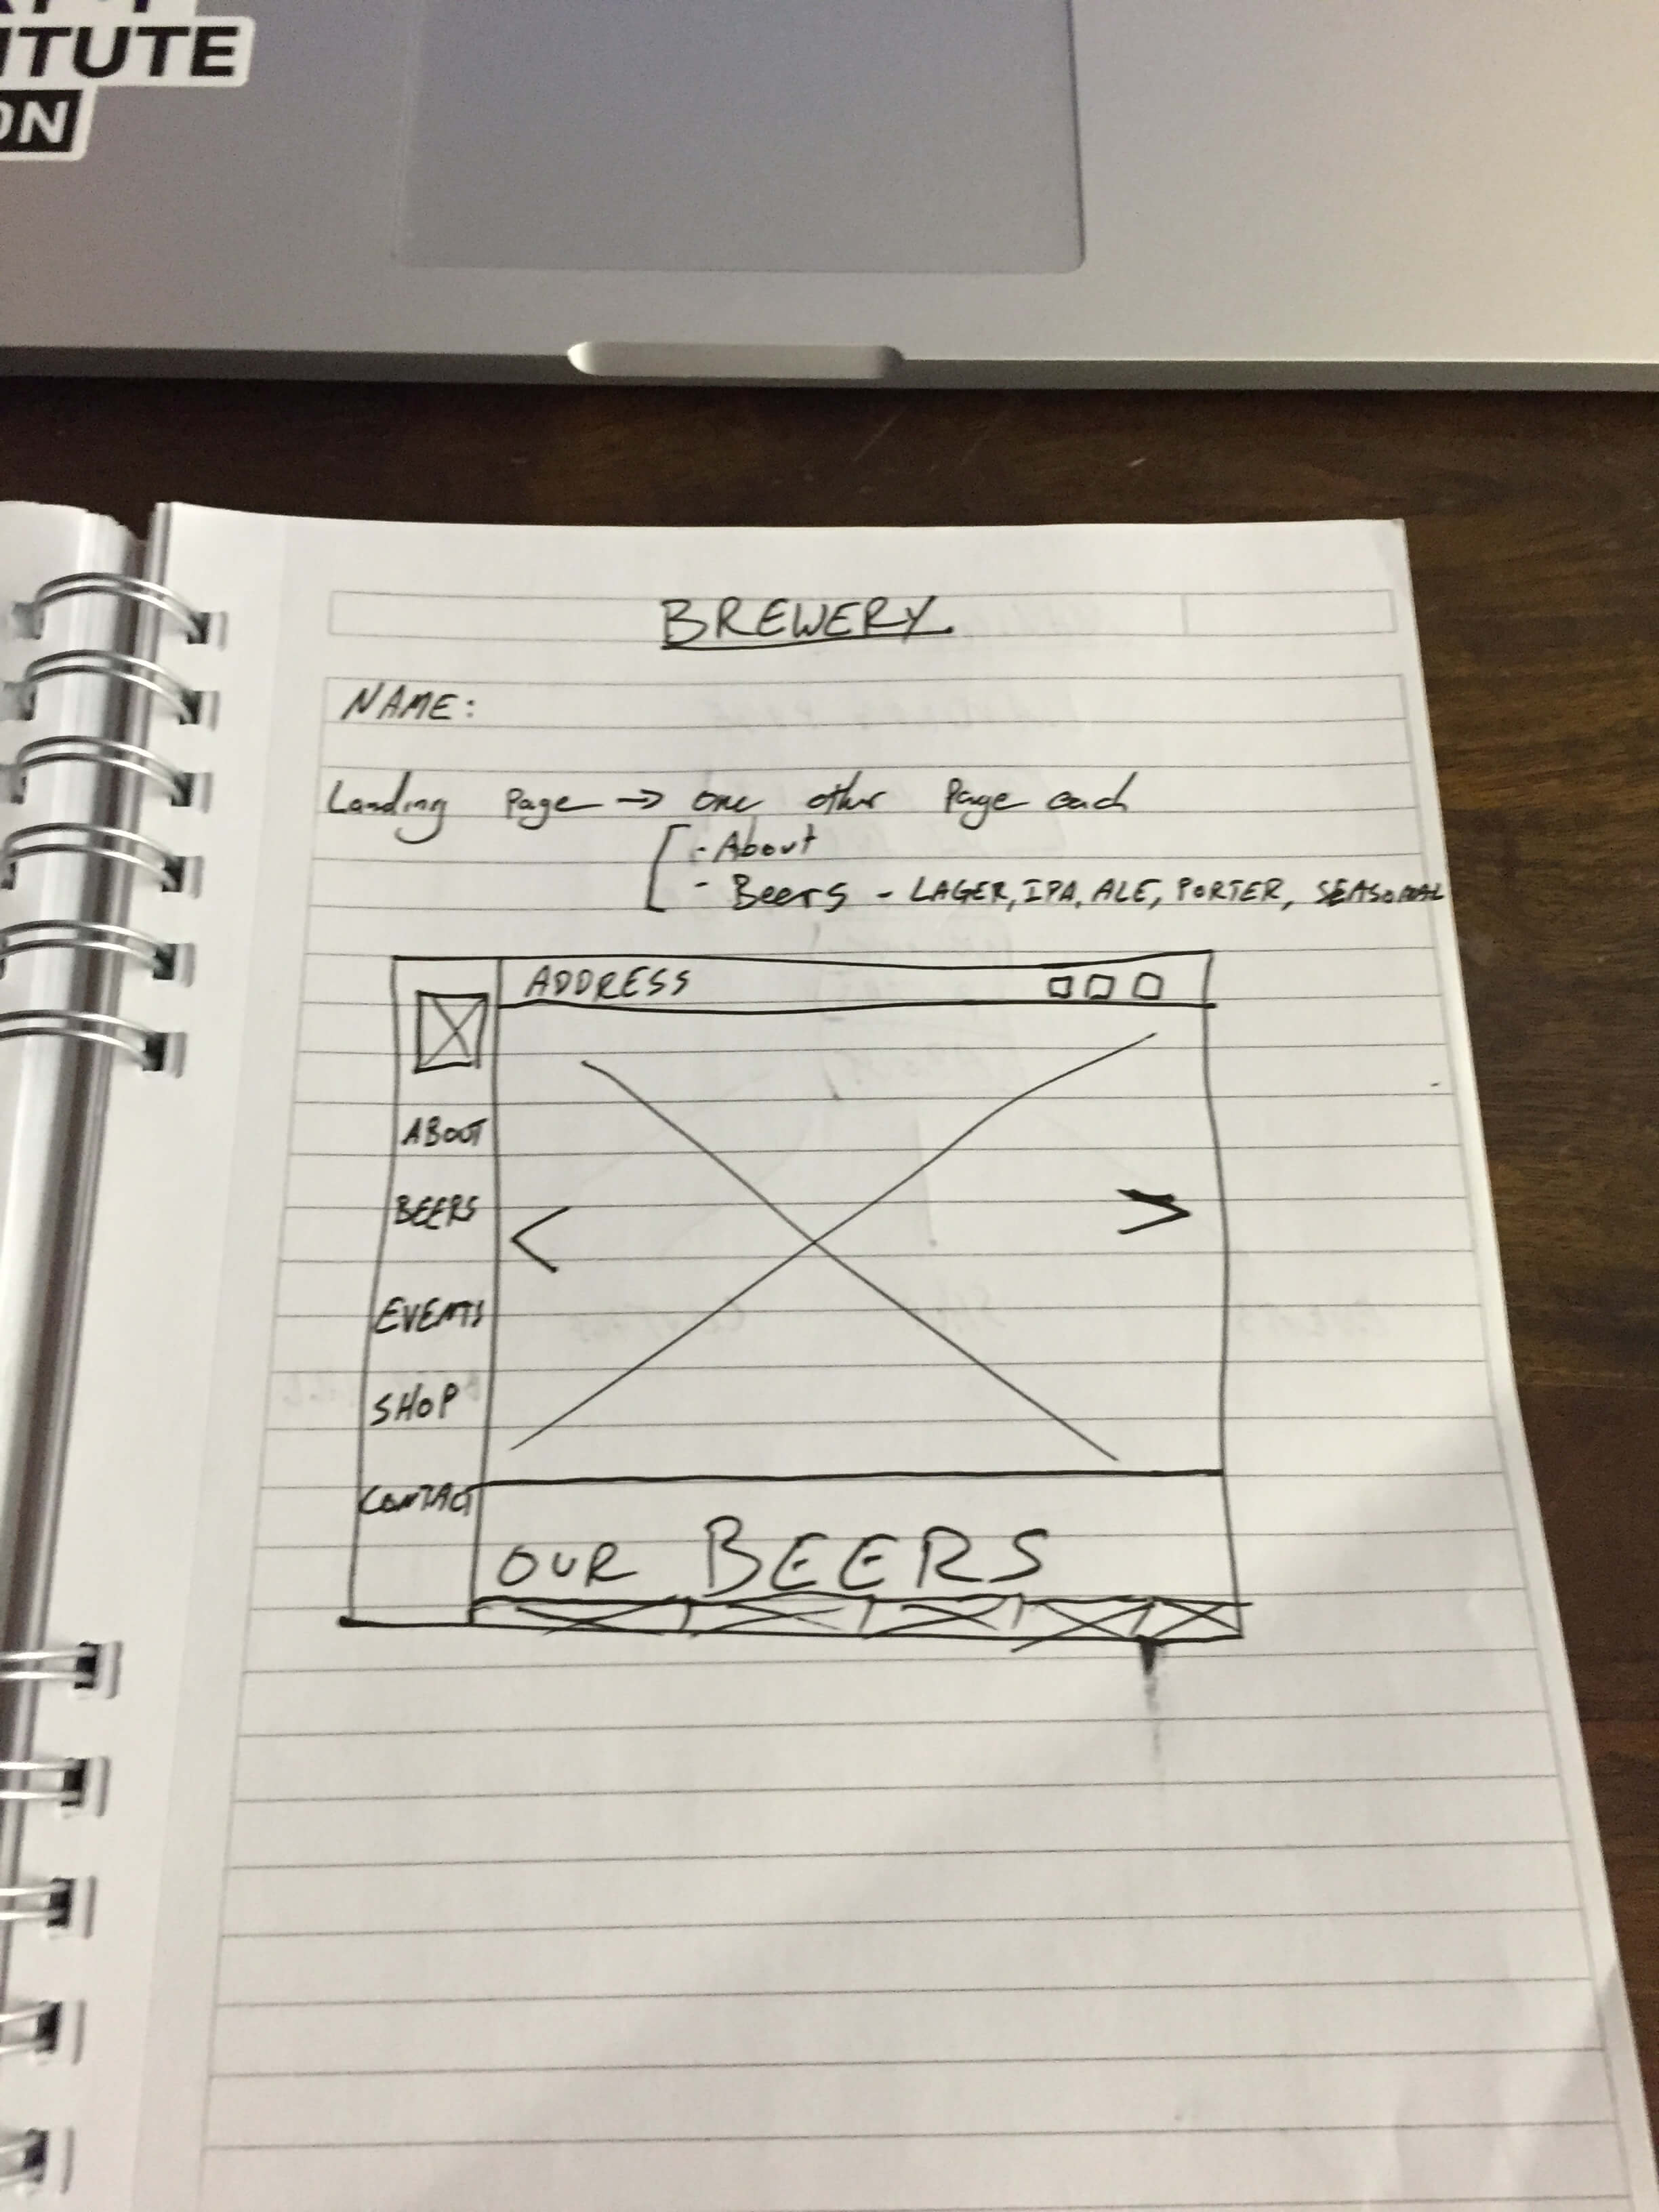 ITUTE
ON
BREWERY.
NAME:
Landing Page → one other Page each
- About
- Beers - LAGER, IPA, ALE, PORTER, SEASONAL
ADDRESS
ABOUT
BEERS
EVENTS
SHOP
CONTACT
OUR BEERS